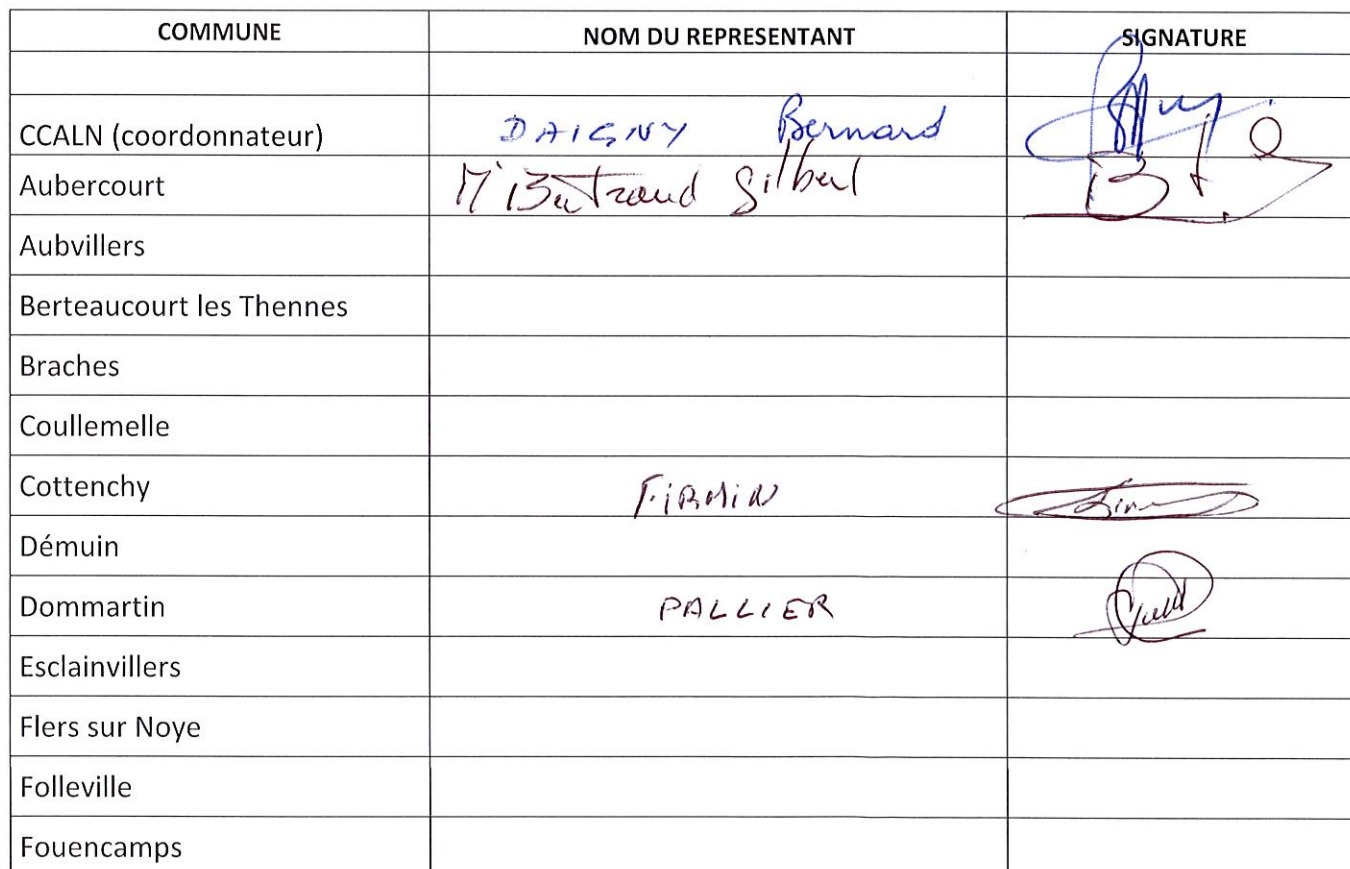 COMMUNE NOM DU REPRESENTANT SIGNATURE
CCALN (coordonnateur) DAIGNY Bernard
Aubercourt Mr Bertrand Gilbert
Aubvillers
Berteaucourt les Thennes
Braches
Coullemelle
Cottenchy FIRMIN
Démuin
Dommartin PALLIER
Esclainvillers
Flers sur Noye
Folleville
Fouencamps